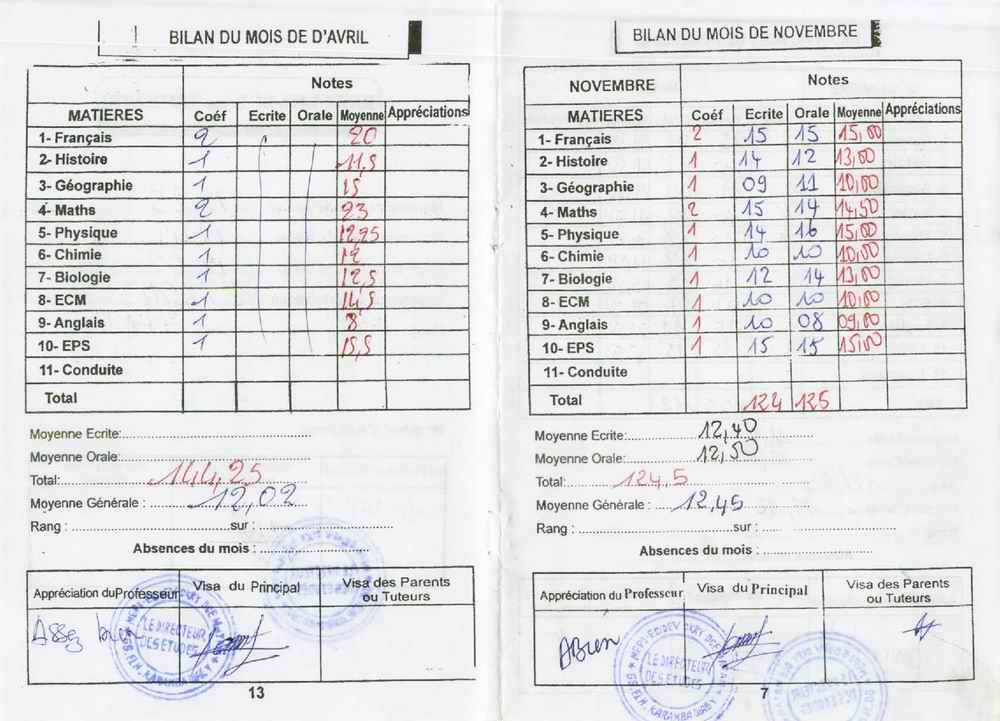 BILAN DU MOIS DE D'AVRIL
Notes
MATIERES Coéf Ecrite Orale Moyenne Appréciations
1- Français 2 20
2- Histoire 1 11,5
3- Géographie 1 15
4- Maths 2 23
5- Physique 1 12,25
6- Chimie 1 12
7- Biologie 1 12,5
8- ECM 1 14,5
9- Anglais 1 8
10- EPS 1 15,5
11- Conduite
Total
Moyenne Ecrite:
Moyenne Orale:
Total: 144,25
Moyenne Générale : 12,02
Rang : sur :
Absences du mois :
Appréciation du Professeur Visa du Principal Visa des Parents ou Tuteurs
Assez bien
LE DIRECTEUR
DES ETUDES
13
BILAN DU MOIS DE NOVEMBRE
NOVEMBRE Notes
MATIERES Coéf Ecrite Orale Moyenne Appréciations
1- Français 2 15 15 15,00
2- Histoire 1 14 12 13,00
3- Géographie 1 09 11 10,00
4- Maths 2 15 14 14,50
5- Physique 1 14 16 15,00
6- Chimie 1 10 10 10,00
7- Biologie 1 12 14 13,00
8- ECM 1 10 10 10,00
9- Anglais 1 10 08 09,00
10- EPS 1 15 15 15,00
11- Conduite
Total 124 125
Moyenne Ecrite: 12,40
Moyenne Orale: 12,50
Total: 124,5
Moyenne Générale : 12,45
Rang : sur :
Absences du mois :
Appréciation du Professeur Visa du Principal Visa des Parents ou Tuteurs
ABien
LE DIRECTEUR
DES ETUDES
7